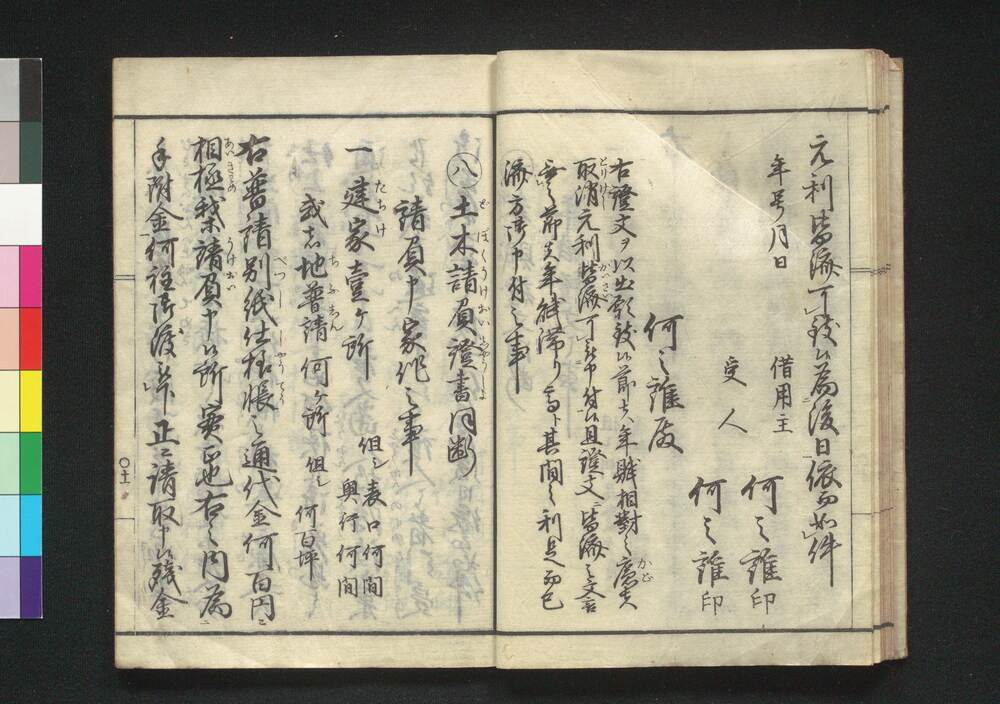 元利皆済可致候為後日依而如件
年号月日
借用主
何之誰印
受人
何之誰印
何之誰殿
右證文ヲ以出願致候節ハ年賦相對之廉者
取消元利皆済可被申付候且證文ニ皆済之文言
無之節者年賦滞り高ト其間之利足而已
済方被申付之事
八
土木請負證書同断
請負申家作之事
一建家壹ヶ所
但シ
表口何間
奥行何間
或は地普請何ヶ所
但シ
何百坪
右普請別紙仕様帳之通代金何百円ニ
相極メ請負申候所実正也右之内為
手附金何程御渡シ正ニ請取申候残金